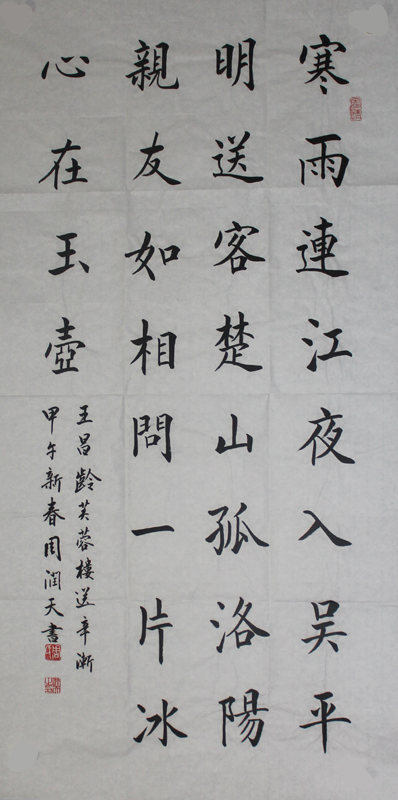 寒雨連江夜入吴平
明送客楚山孤洛陽
親友如相問一片冰
心在玉壺
王昌齡芙蓉樓送辛漸
甲午新春周潤天書